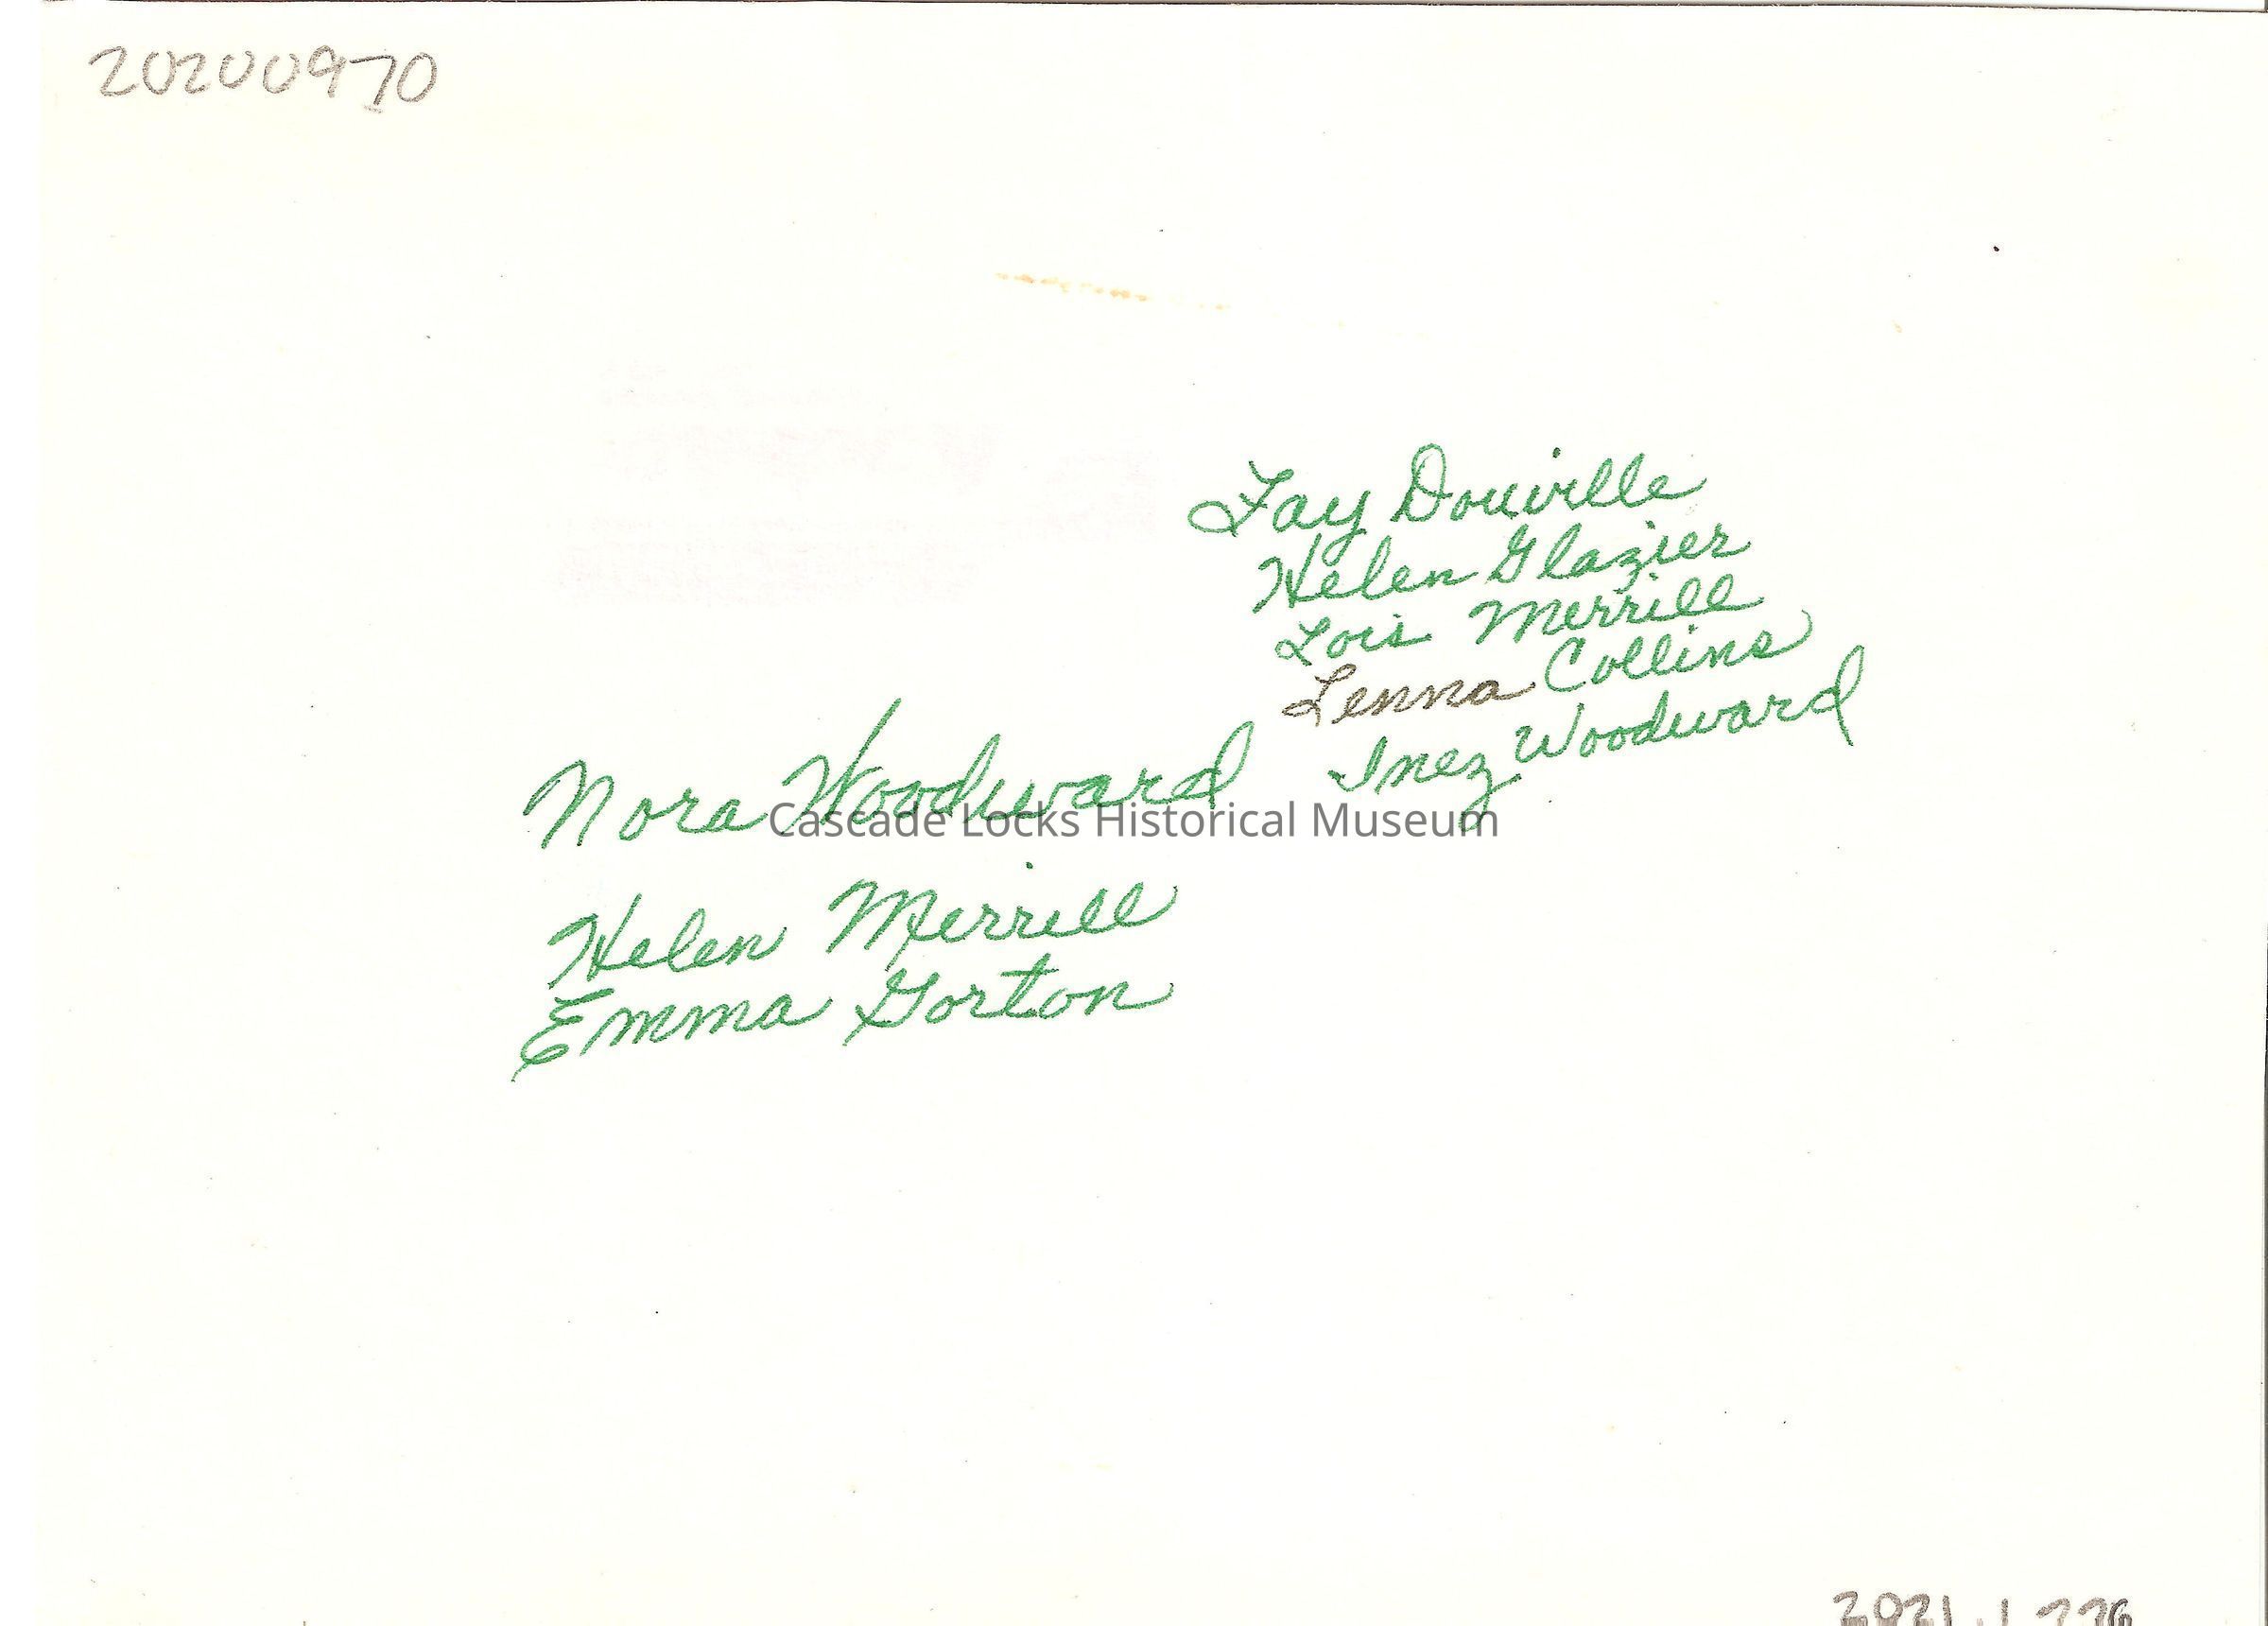 20200970
Fay Douville
Helen Glazier
Lois Merrill
Lenna Collins
Inez Woodward
Nora Woodward
Cascade Locks Historical Museum
Helen Merrill
Emma Gorton
2021.1.226